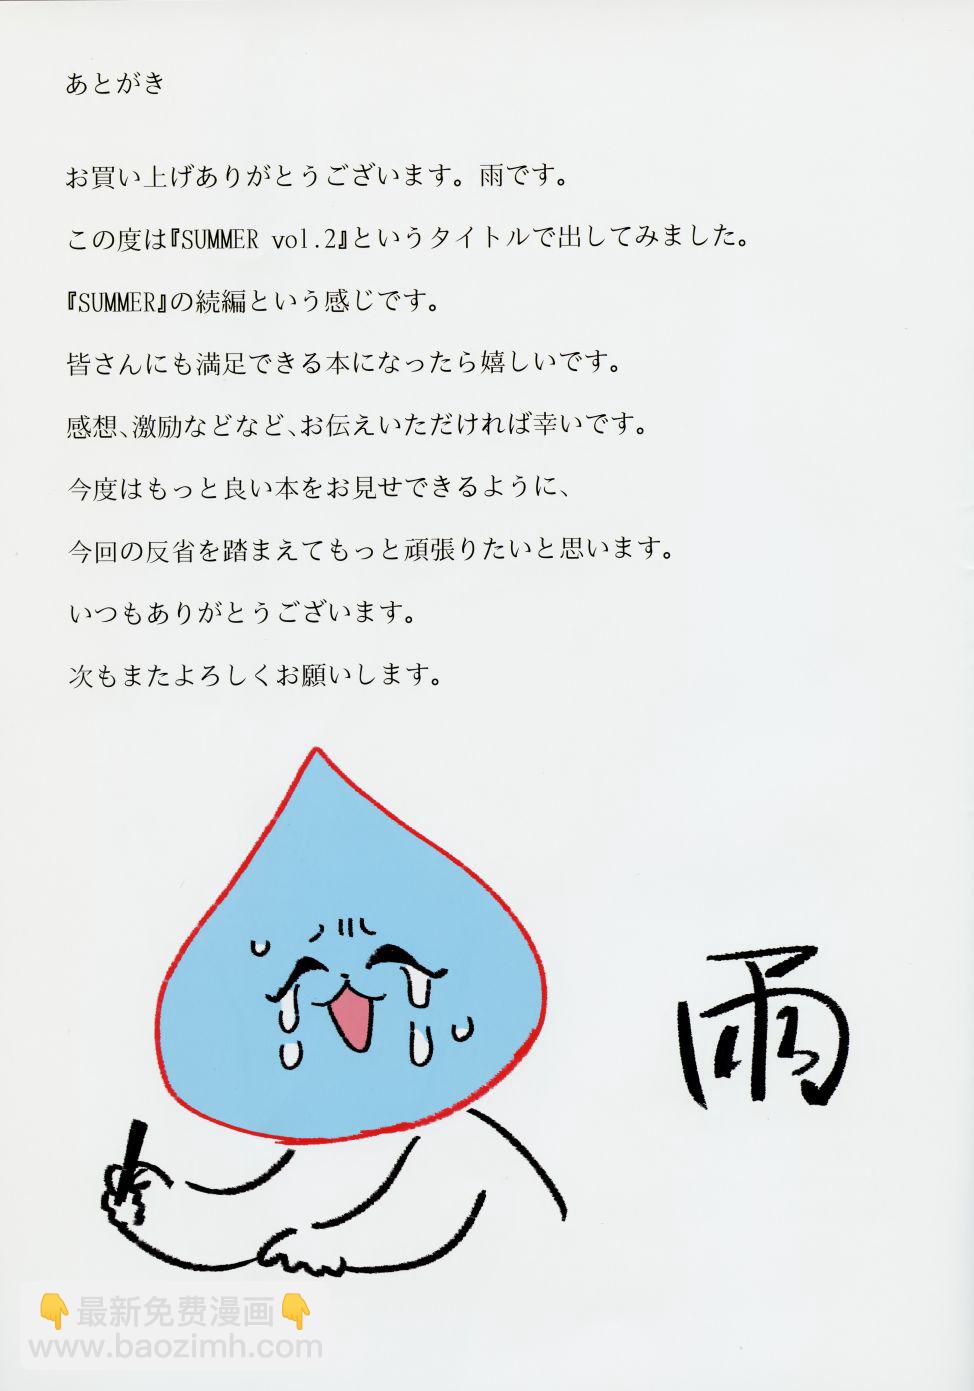 あとがき
お買い上げありがとうございます。雨です。
この度は『SUMMER vol.2』というタイトルで出してみました。
『SUMMER』の続編という感じです。
皆さんにも満足できる本になったら嬉しいです。
感想、激励などなど、お伝えいただければ幸いです。
今度はもっと良い本をお見せできるように、
今回の反省を踏まえてもっと頑張りたいと思います。
いつもありがとうございます。
次もまたよろしくお願いします。
雨
👇最新免费漫画👇
www.baozimh.com